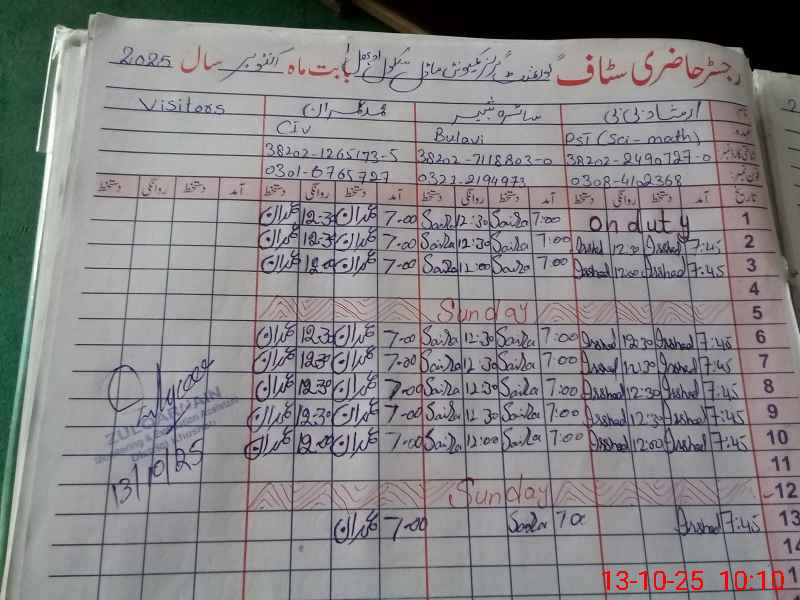 رجسٹر حاضری سٹاف گورنمنٹ گرلز کمیونٹی ماڈل سکول بابت ماہ اکتوبر سال 2025
ارشاد بی بی سائرہ Visitors
PST (Sci-math) Bulavi Civ
38202-2490727-0 38202-7118803-0 38202-1265173-5
0308-4102368 0323-2194973 0301-6765727
تاریخ آمد دستخط روانگی دستخط آمد دستخط روانگی دستخط آمد دستخط روانگی دستخط آمد دستخط روانگی دستخط
1 on duty 7:00 Saira 12:30 Saira 7-00 12:30
2 7:45 Irshad 12:30 Irshad 7:00 Saira 12:30 Saira 7-00 12:30
3 7:45 Irshad 12:00 Irshad 7:00 Saira 12:00 Saira 7-00 12:00
4
5 Sunday
6 7:45 Irshad 12:30 Irshad 7:00 Saira 12:30 Saira 7-00 12:30
7 7:45 Irshad 12:30 Irshad 7:00 Saira 12:30 Saira 7-00 12:30
8 7:45 Irshad 12:30 Irshad 7:00 Saira 12:30 Saira 7-00 12:30
9 7:45 Irshad 12:30 Irshad 7:00 Saira 12:30 Saira 7-00 12:30
10 7:45 Irshad 12:00 Irshad 7:00 Saira 12:00 Saira 7-00 12:00
11
12 Sunday
13 7:45 Irshad 7:00 Saira 7-00
14
ZULQARNAIN
Monitoring & Evaluation Assistant
13/10/25
13-10-25 10:10